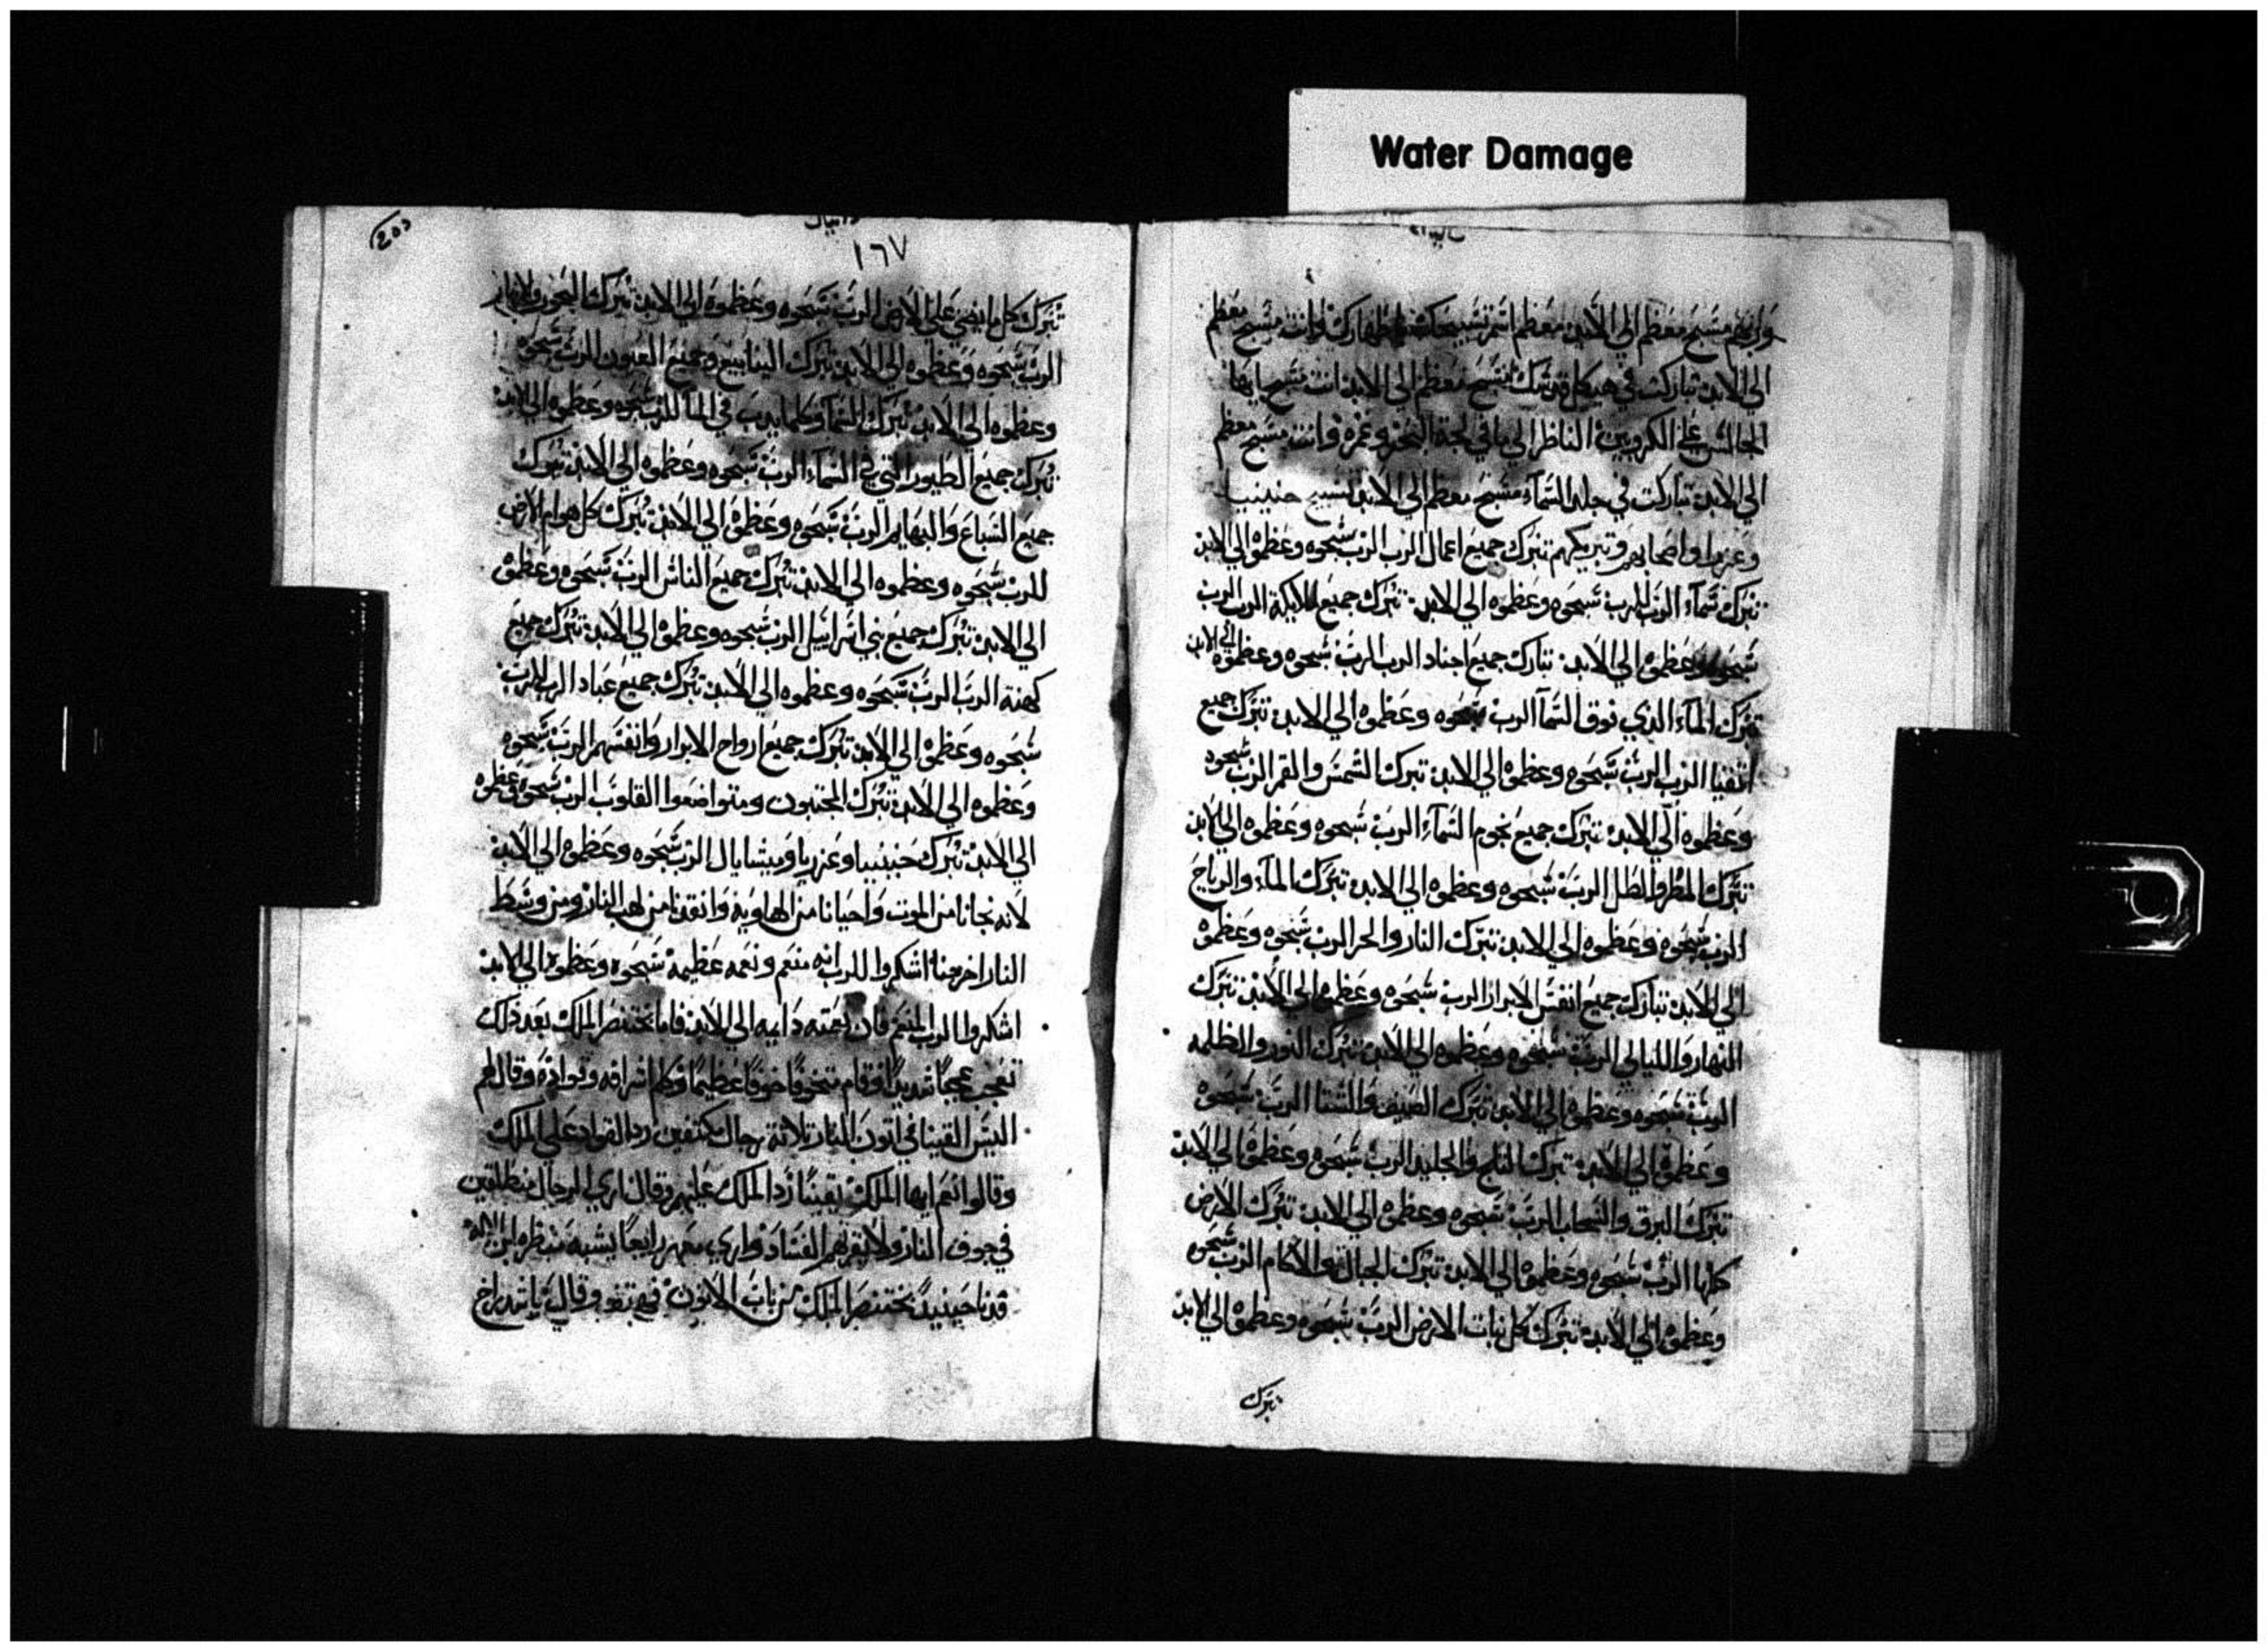 Water Damage
الى الابد تباركت في هيكل قدسك مسبح معظم الي الابد انت مسبح ايها
الجالس علي الكروبين الناظر الي ما في لجة البحر وغمره وانت مسبح معظم
الي الابد تباركت في جلد السماء مسبح معظم الي الابد تسبيح حنينيا
وعزريا واصحابهم وتبريكهم تبرك جميع اعمال الرب الرب سبحوه وعظموه الي الابد
تبرك سماء الرب الرب سبحوه وعظموه الي الابد تبرك جميع ملايكة الرب الرب
سبحوه وعظموه الي الابد تبارك جميع اجناد الرب الرب سبحوه وعظموه الي الابد
تبرك الماء الذي فوق السما الرب سبحوه وعظموه الي الابد تبرك جميع
الرب الرب سبحوه وعظموه الي الابد تبرك الشمس والقمر الرب سبحوه
وعظموه الي الابد تبرك جميع نجوم السماء الرب سبحوه وعظموه الي الابد
تبرك المطر والطل الرب سبحوه وعظموه الي الابد تبرك الماء والرياح
الرب سبحوه وعظموه الي الابد تبرك النار والحر الرب سبحوه وعظموه
الي الابد تبارك جميع انفس الابرار الرب سبحوه وعظموه الي الابد تبرك
النهار والليالي الرب سبحوه وعظموه الي الابد تبرك النور والظلمه
الرب سبحوه وعظموه الي الابد تبرك الصيف والشتا الرب سبحوه
وعظموه الي الابد تبرك الثلج والجليد الرب سبحوه وعظموه الي الابد
تبرك البرق والسحاب الرب سبحوه وعظموه الي الابد تبرك الارض
كلها الرب سبحوه وعظموه الي الابد تبرك الجبال والاكام الرب سبحوه
وعظموه الي الابد تبرك كل نبات الارض الرب سبحوه وعظموه الي الابد
تبرك
دانيال
١٦٧
تبرك كل ما يضي علي الارض الرب سبحوه وعظموه الي الابد تبرك البحور والانهار
الرب سبحوه وعظموه الي الابد تبرك الينابيع وجميع العيون الرب سبحوه
وعظموه الي الابد تبرك السما وكلما يدب في الما للرب سبحوه وعظموه الي الابد
تبرك جميع الطيور التي في السماء الرب سبحوه وعظموه الي الابد تبرك
جميع السباع والبهايم الرب سبحوه وعظموه الي الابد تبرك كل هوام الارض
للرب سبحوه وعظموه الي الابد تبرك جميع الناس الرب سبحوه وعظموه
الي الابد تبرك جميع بني اسراييل الرب سبحوه وعظموه الي الابد تبرك جميع
كهنة الرب الرب سبحوه وعظموه الي الابد تبرك جميع عباد الرب الرب
سبحوه وعظموه الي الابد تبرك جميع ارواح الابرار وانفسهم الرب سبحوه
وعظموه الي الابد تبرك المخبتون ومتواضعوا القلوب الرب سبحوه وعظموه
الي الابد تبرك حنينيا وعزريا وميشايال الرب سبحوه وعظموه الي الابد
لانه نجانا من الموت واحيانا من الهاوية وانقذنا من لهب النار ومن وسط
النار اخرجنا اشكروا للرب انه منعم ونعمه عظيمة سبحوه وعظموه الي الابد
اشكروا الرب المنعم فان نعمته دايمه الي الابد فاما بختنصر الملك بعد ذلك
تعجب عجبا شديدا وقام متخوفا خوفا عظيما وكلم اشرافه وقواده وقال لهم
اليس القينا في اتون النار ثلاثة رجال مكتفين رد القواد علي الملك
وقالوا نعم ايها الملك يقينا رد الملك عليهم وقال اري الرجال منطلقين
في جوف النار ولا يقربهم الفساد واري معهم رابعا يشبه منظره ابن الاله
فدنا حينيذ بختنصر الملك من باب الاتون وقال يا شدراخ